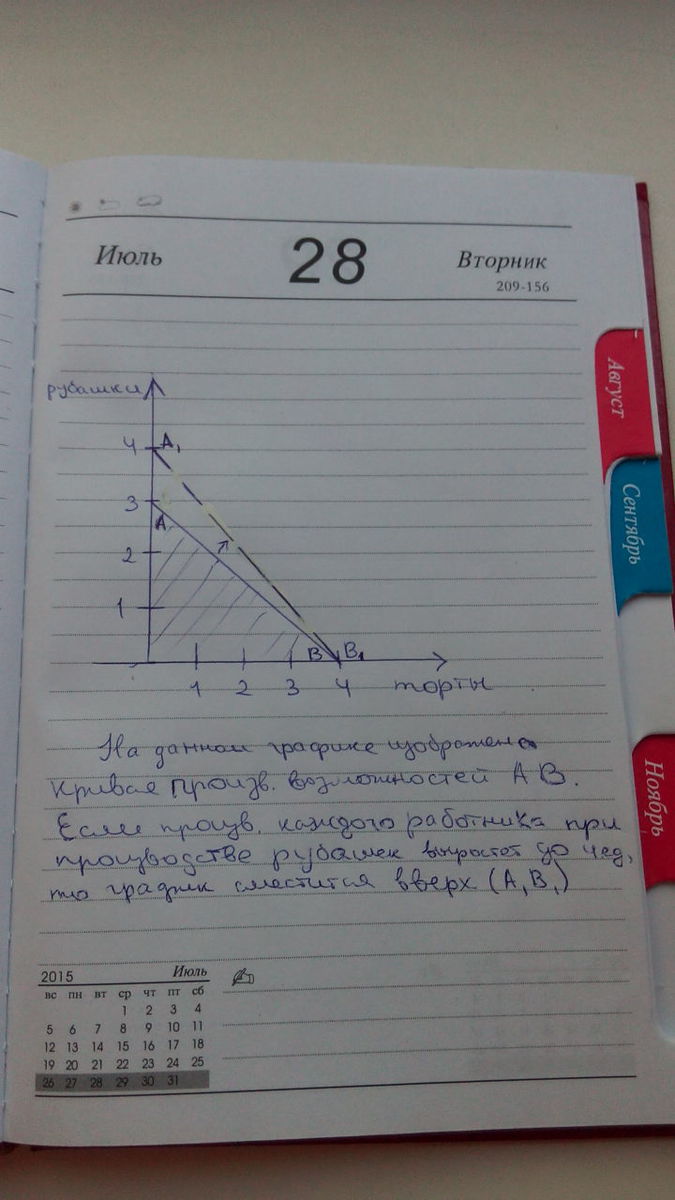 Июль 28 Вторник
209-156
Август
Сентябрь
Ноябрь
рубашки
4 A₁
3
A
2
1
B B₁
1 2 3 4 торты
На данном графике изображена
кривая произв. возможностей AB.
Если произв. каждого работника при
производстве рубашек вырастет до 4ед,
то график сместится вверх (A₁B₁)
2015 Июль
вс пн вт ср чт пт сб
1 2 3 4
5 6 7 8 9 10 11
12 13 14 15 16 17 18
19 20 21 22 23 24 25
26 27 28 29 30 31